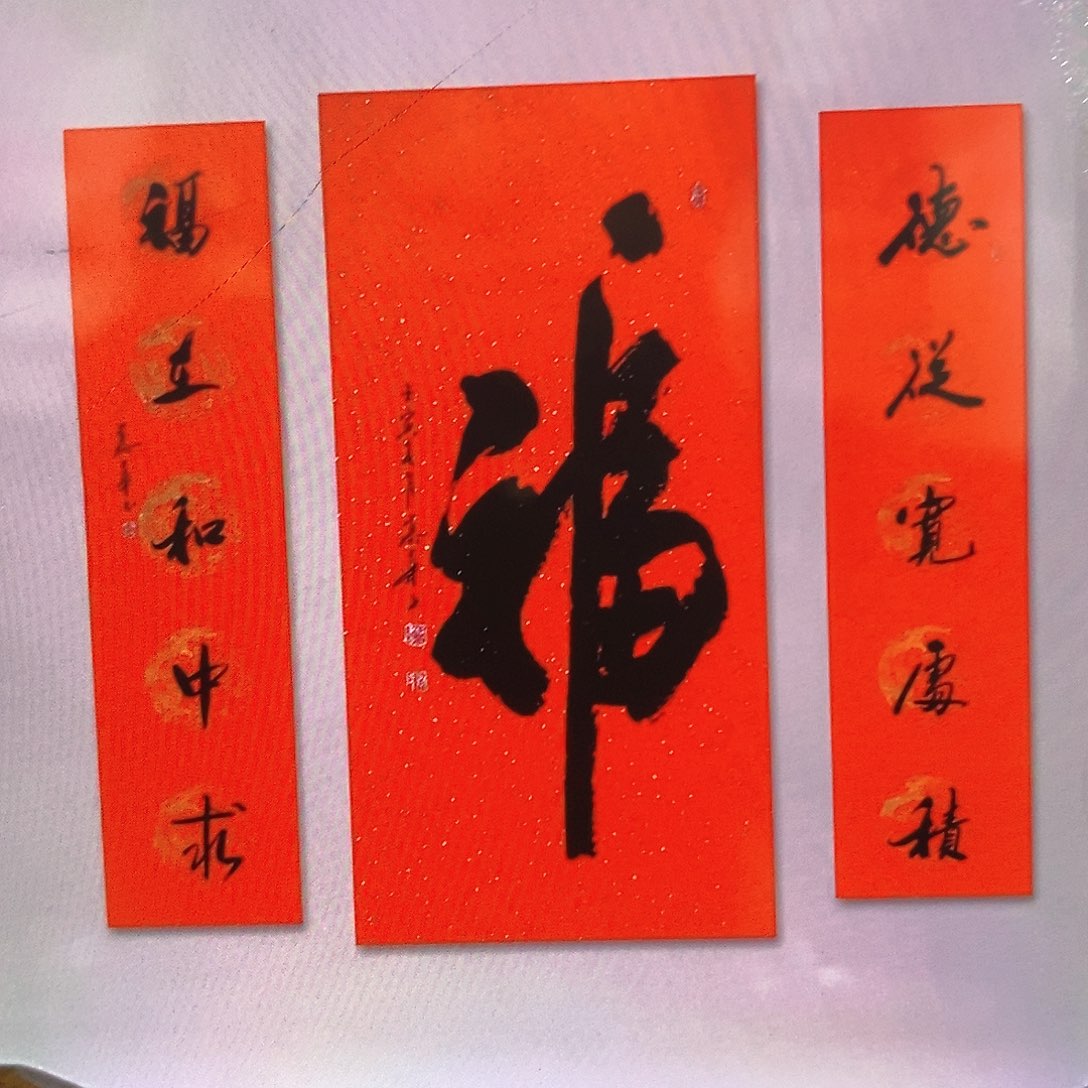 德從寬處積
福
福在和中求